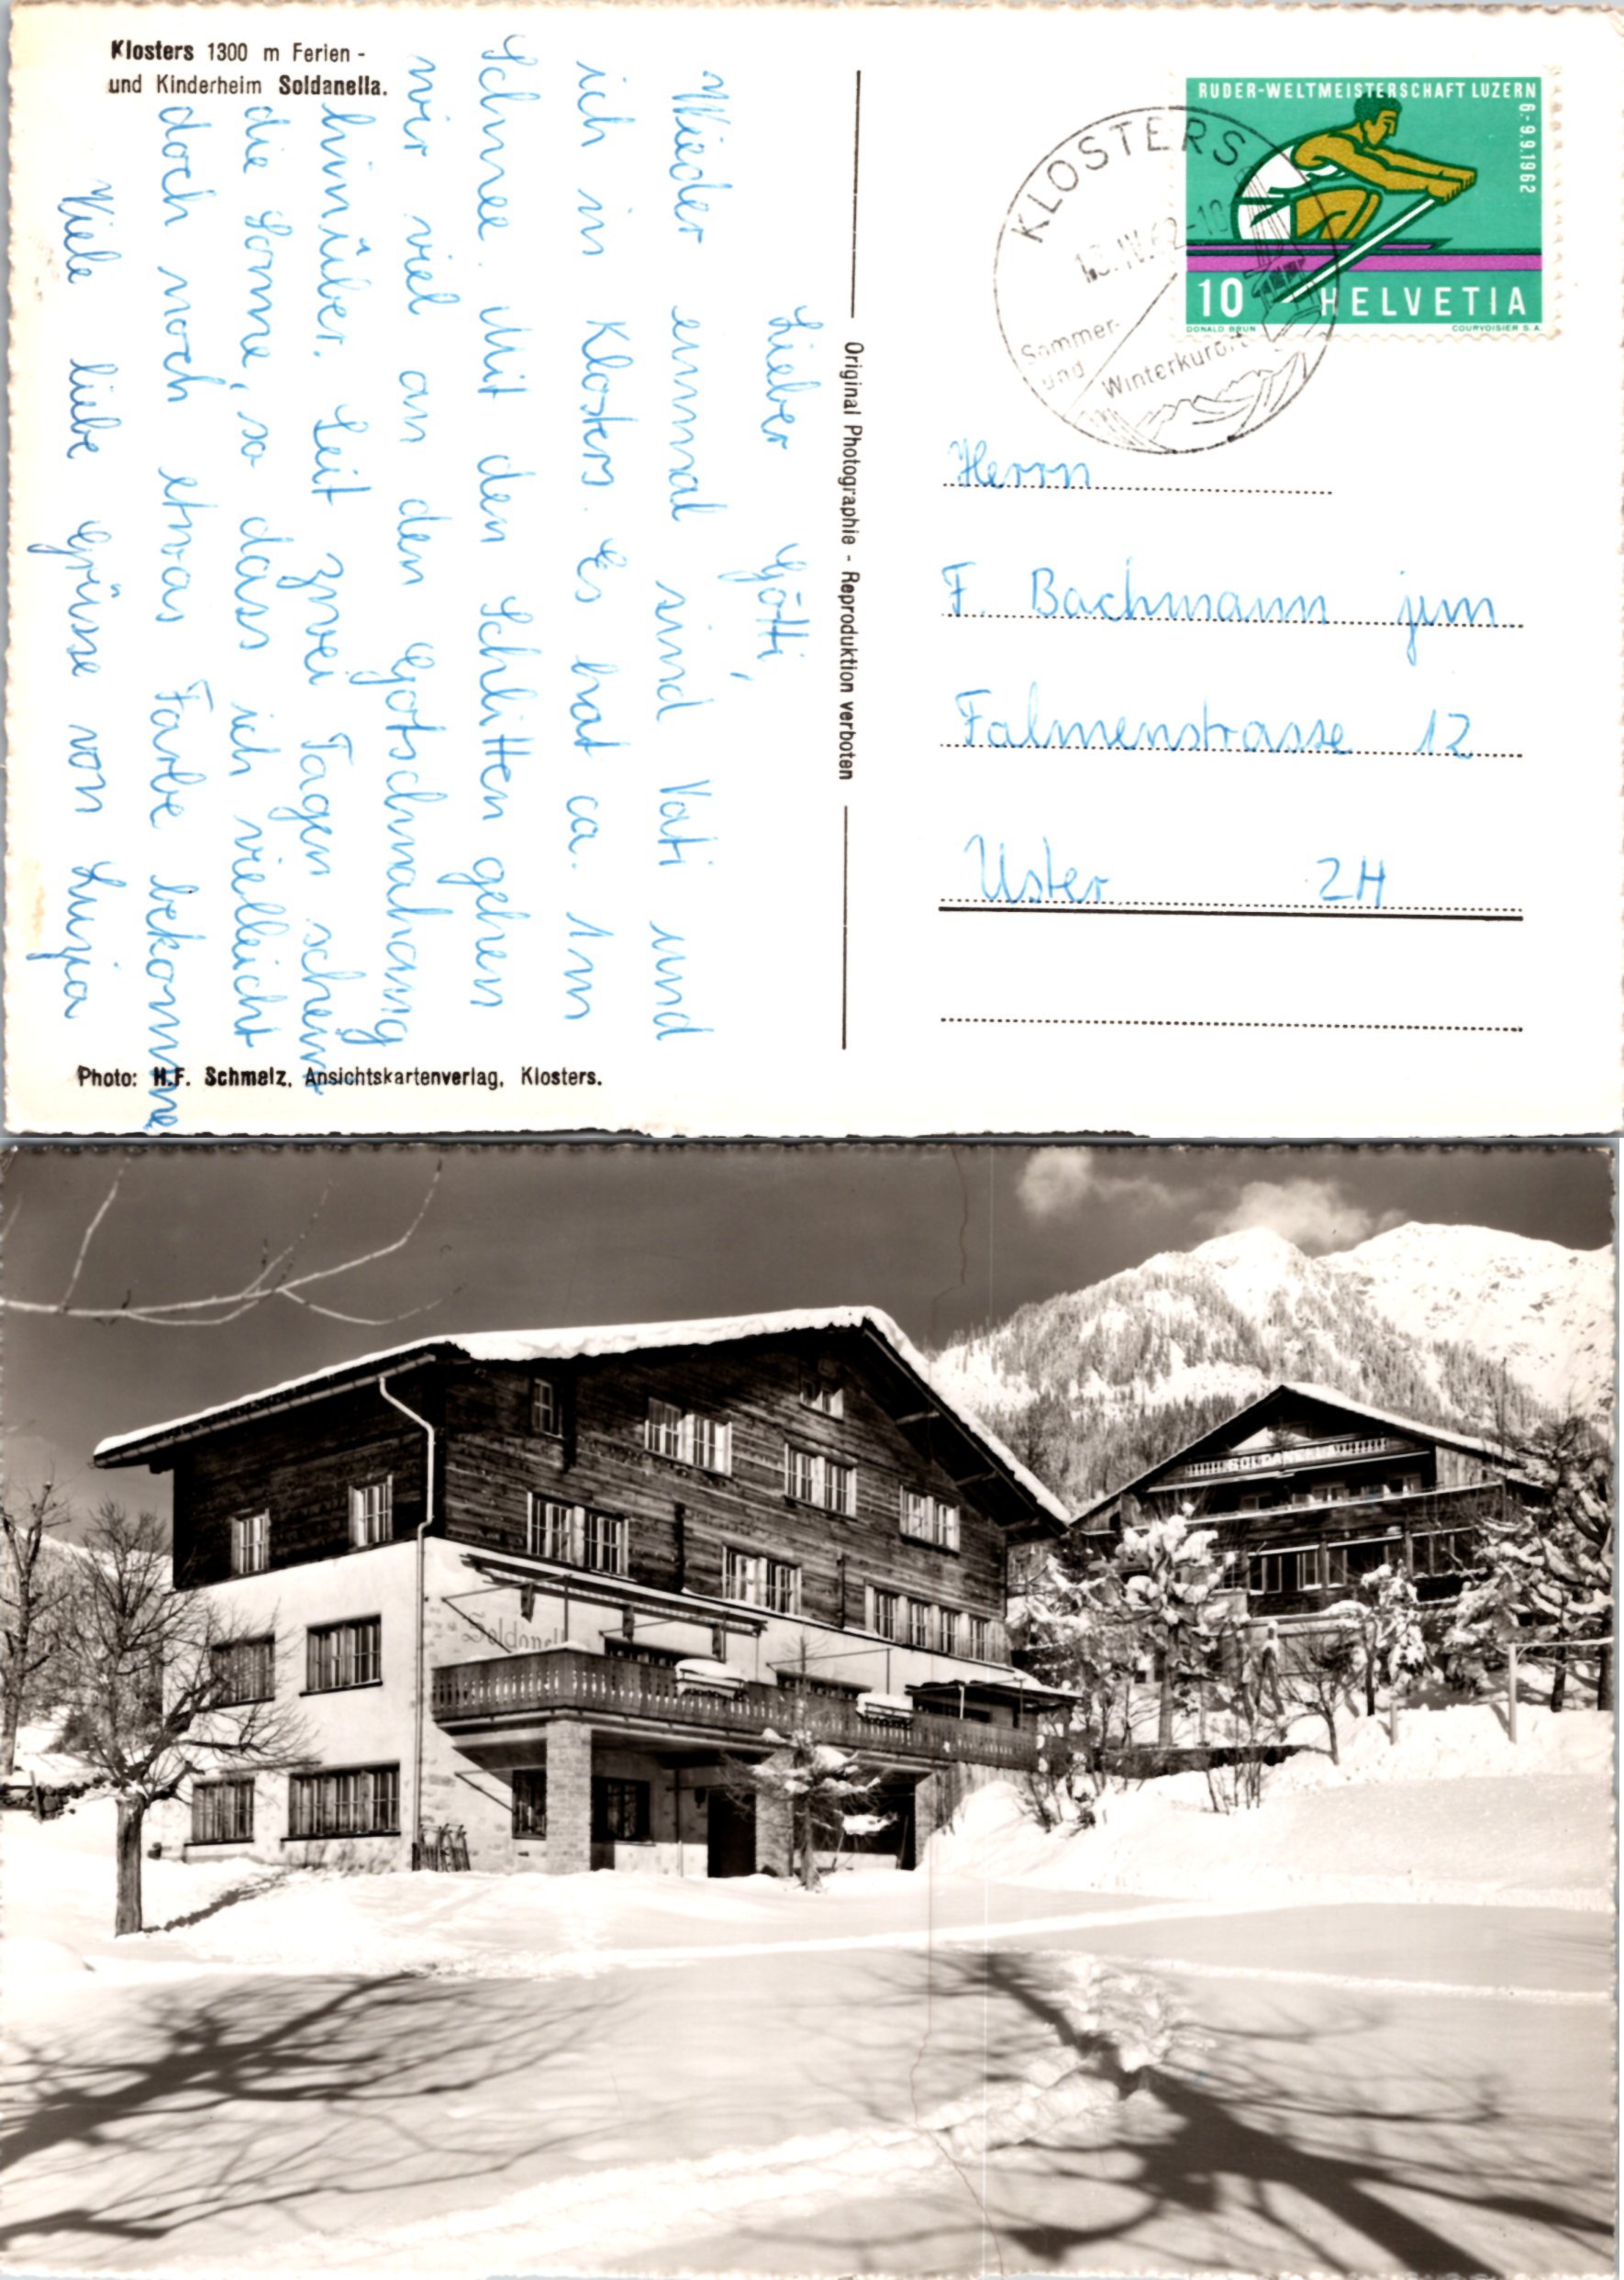 Klosters 1300 m Ferien -
und Kinderheim Soldanella.
Lieber Götti,
Wieder einmal sind Vati und
ich in Klosters. Es hat ca. 1m
Schnee. Mit den Schlitten gehen
wir viel an den Gotschnahang
hinüber. Seit zwei Tagen scheint
die Sonne, so dass ich vielleicht
doch noch etwas Farbe bekomme
Viele liebe Grüsse von Luzia
Photo: H.F. Schmelz, Ansichtskartenverlag, Klosters.
Original Photographie - Reproduktion verboten
RUDER-WELTMEISTERSCHAFT LUZERN
6.-9.9.1962
10 HELVETIA
DONALD BRUN COURVOISIER S.A.
KLOSTERS
13.IV.62-10
Sommer-
und Winterkurort
Herrn
F. Bachmann jun
Falmenstrasse 12
Uster ZH
SOLDANELLA
Soldanell